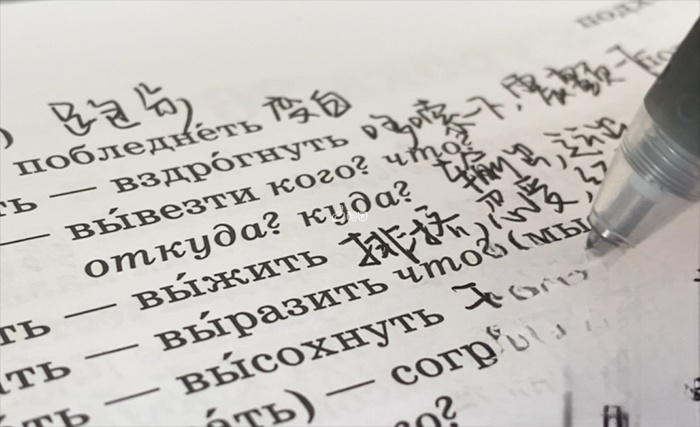 подх
побледне́ть 变白
ть — вздро́гнуть 哆嗦一下,震颤一下
— вы́везти кого? что? 输出,运出
откуда? куда?
ть — вы́жить 排挤,忍受,
ать — вы́разить что? (мы
ть — вы́сохнуть
а́ть) — согр
го?